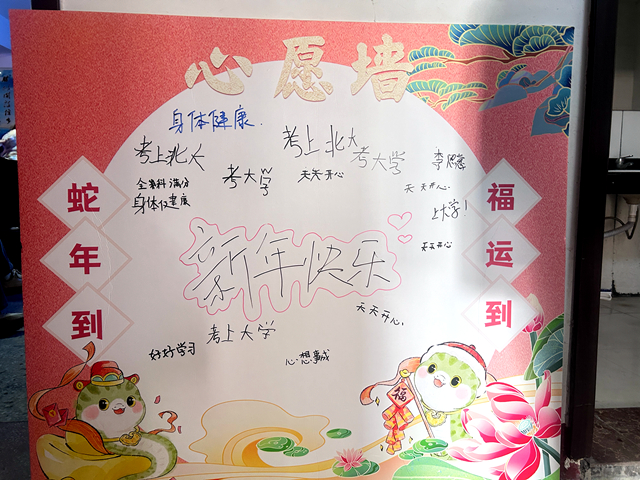 心愿墙
身体健康.
考上北大
考上北大
考大学
考大学
天天开心
全科满分
身体健康
天天开心
上大学!
天天开心
蛇年到
福运到
新年快乐
天天开心
考上大学
好好学习
心想事成
福